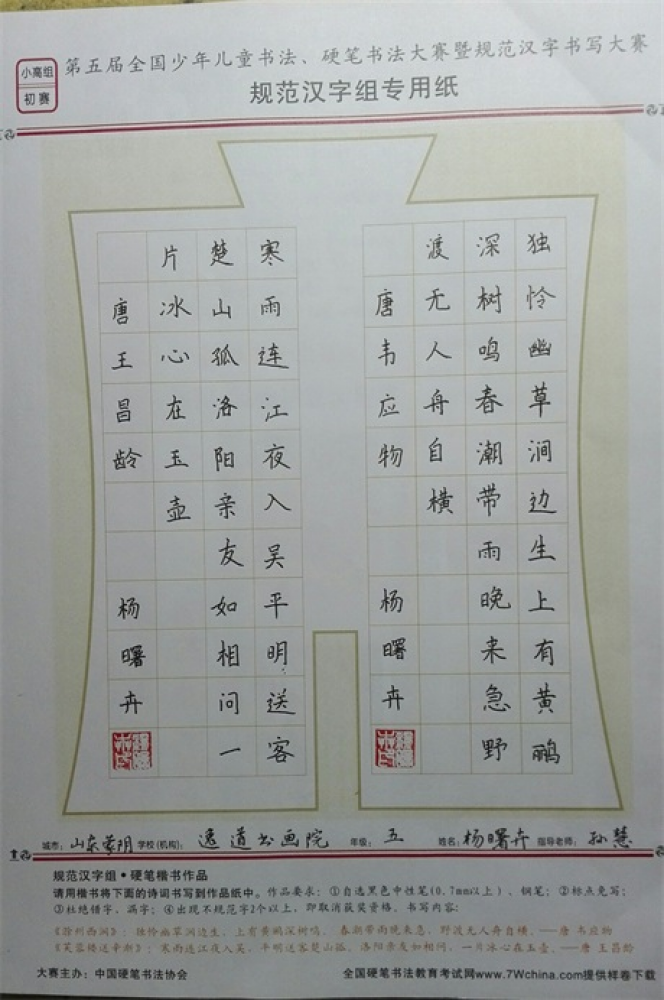 小高组
初赛
第五届全国少年儿童书法、硬笔书法大赛暨规范汉字书写大赛
规范汉字组专用纸
独怜幽草涧边生上有黄鹂
深树鸣春潮带雨晚来急野
渡无人舟自横
唐韦应物 杨曙卉
寒雨连江夜入吴平明送客
楚山孤洛阳亲友如相问一
片冰心在玉壶
唐王昌龄 杨曙卉
城市：山东蒙阴 学校(机构)：逸道书画院 年级：五 姓名：杨曙卉 指导老师：孙慧
规范汉字组•硬笔楷书作品
请用楷书将下面的诗词书写到作品纸中。作品要求：①自选黑色中性笔(0.7mm以上)、钢笔；②标点免写；
③杜绝错字，漏字；④出现不规范字2个以上，即取消获奖资格。书写内容：
《滁州西涧》：独怜幽草涧边生，上有黄鹂深树鸣。 春潮带雨晚来急，野渡无人舟自横。——唐 韦应物
《芙蓉楼送辛渐》：寒雨连江夜入吴，平明送客楚山孤。洛阳亲友如相问，一片冰心在玉壶。——唐 王昌龄
大赛主办：中国硬笔书法协会 全国硬笔书法教育考试网www.7Wchina.com提供样卷下载